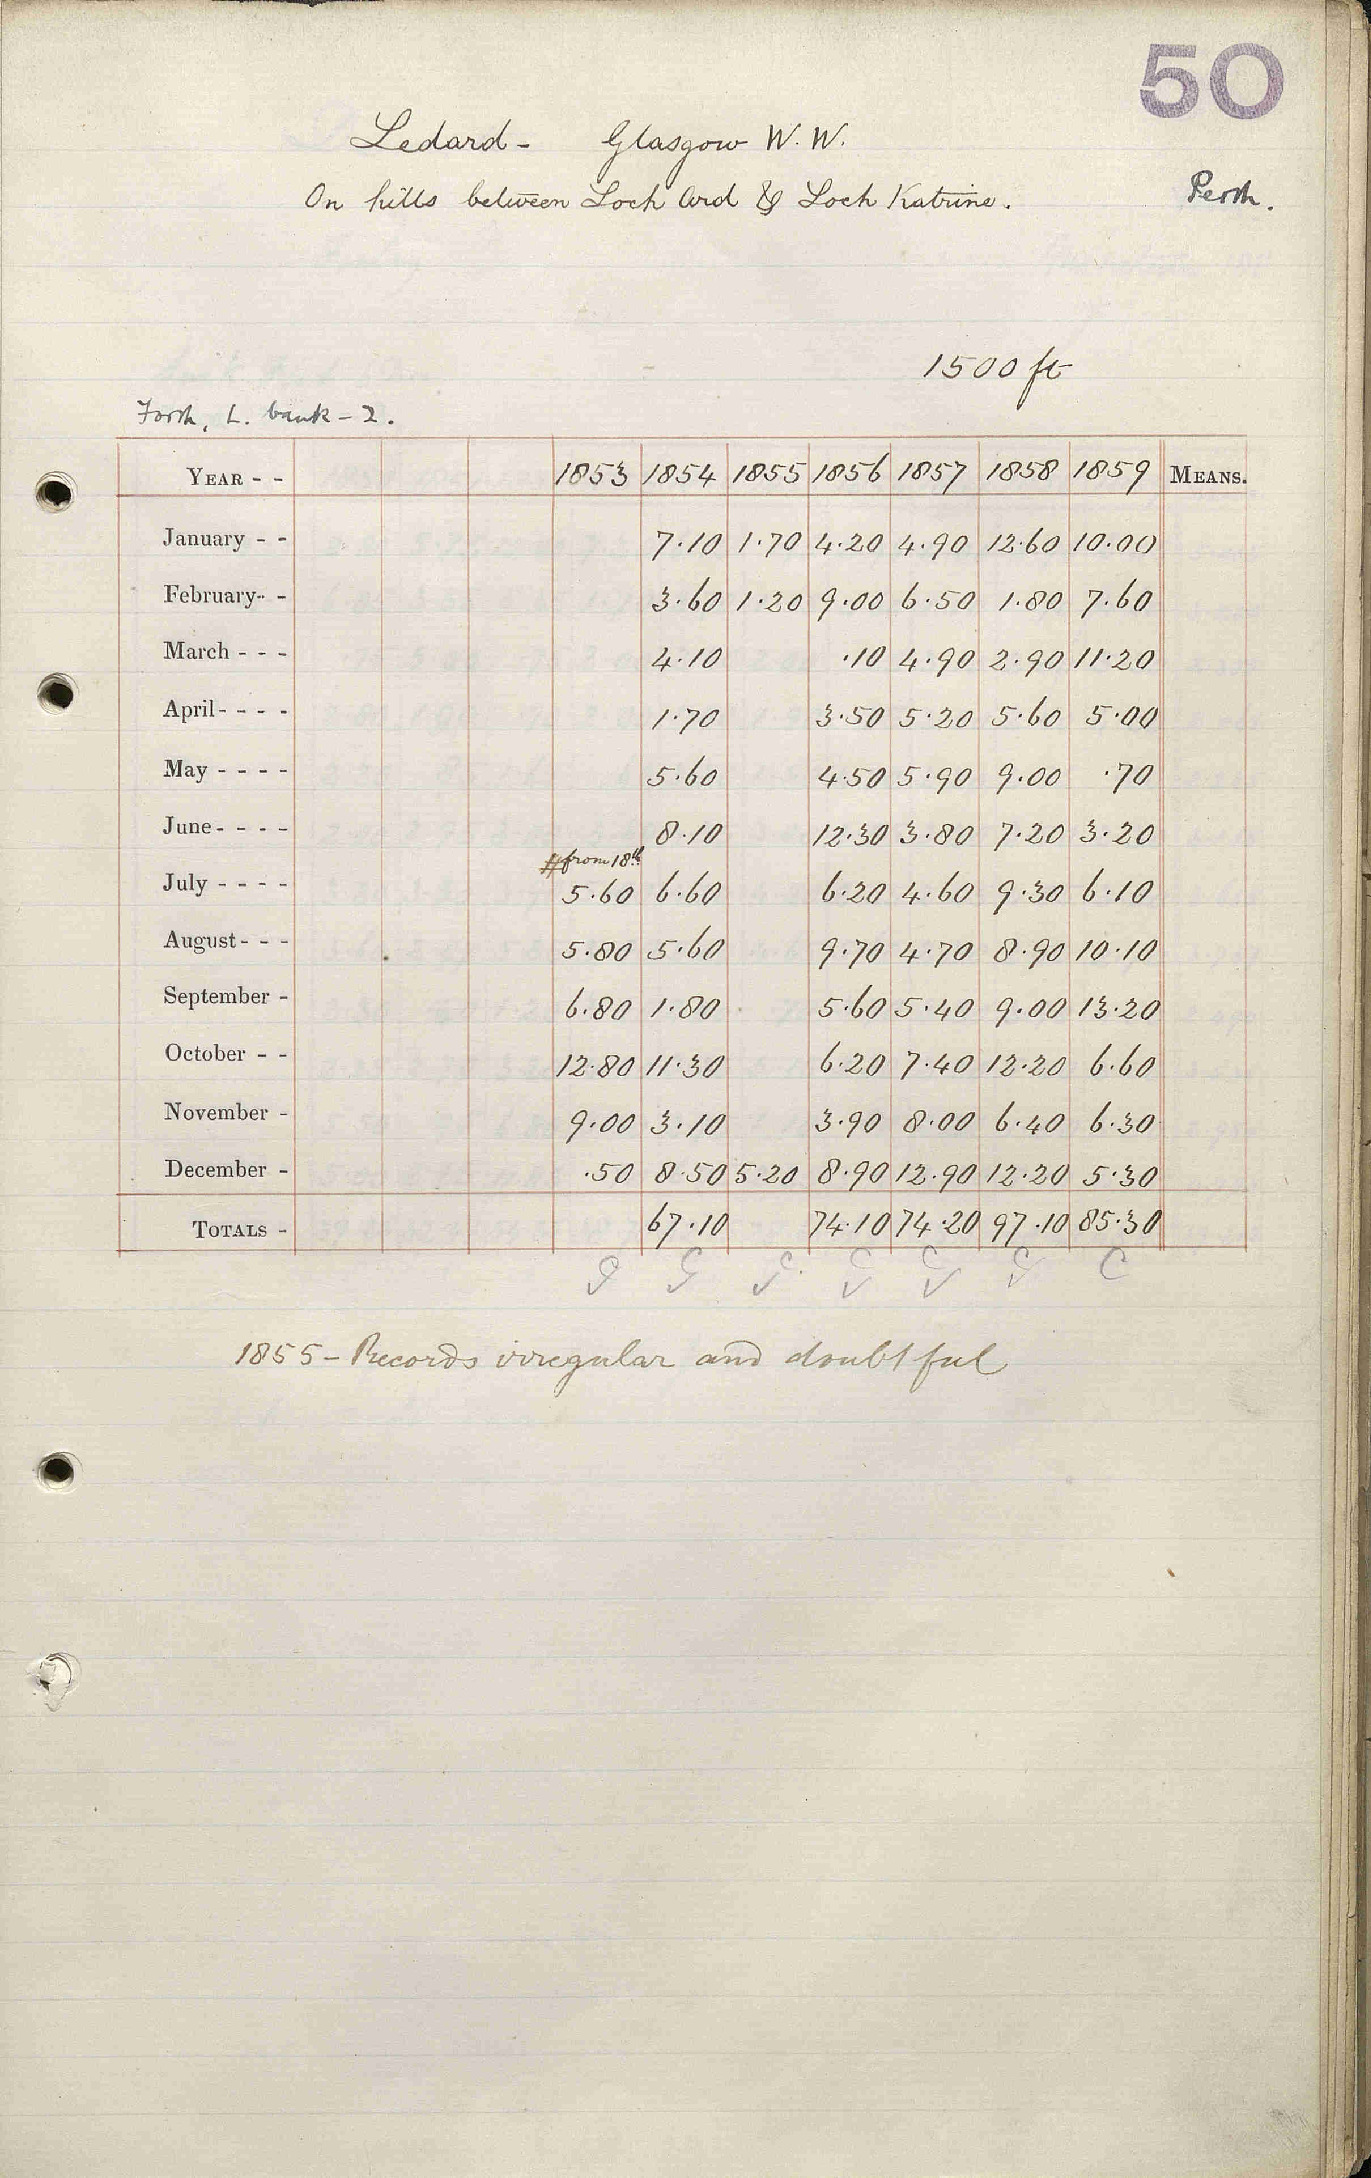 50
Ledard - Glasgow W. W.
On hills between Loch Ard & Loch Katrine. Perth.
1500 ft
Forth, L. bank - 2.
YEAR - - 1853 1854 1855 1856 1857 1858 1859 MEANS.
January - - 7.10 1.70 4.20 4.90 12.60 10.00
February - - 3.60 1.20 9.00 6.50 1.80 7.60
March - - - 4.10 .10 4.90 2.90 11.20
April - - - - 1.70 3.50 5.20 5.60 5.00
May - - - - 5.60 4.50 5.90 9.00 .70
June - - - - 8.10 12.30 3.80 7.20 3.20
# from 18th
July - - - - 5.60 6.60 6.20 4.60 9.30 6.10
August - - - 5.80 5.60 9.70 4.70 8.90 10.10
September - 6.80 1.80 5.60 5.40 9.00 13.20
October - - 12.80 11.30 6.20 7.40 12.20 6.60
November - 9.00 3.10 3.90 8.00 6.40 6.30
December - .50 8.50 5.20 8.90 12.90 12.20 5.30
TOTALS - 67.10 74.10 74.20 97.10 85.30
1855 - Records irregular and doubtful